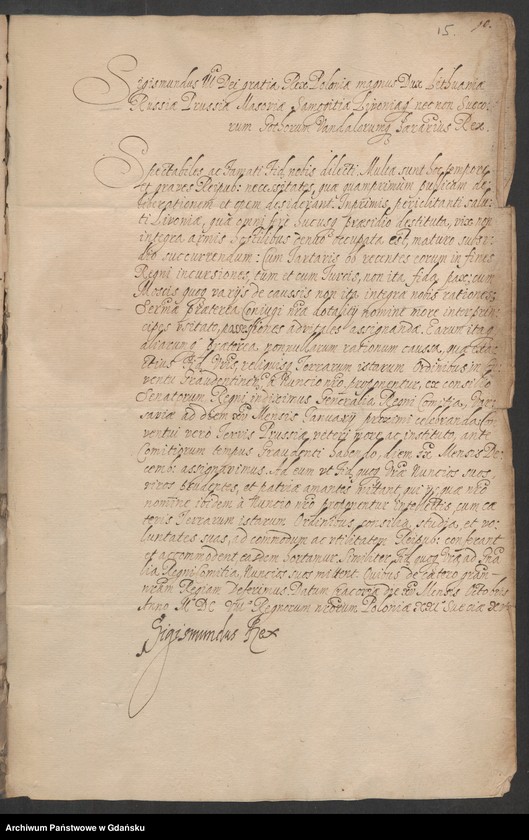 15. 10.
Sigismundus III Dei gratia Rex Poloniæ magnus Dux Lithuaniæ
Russiæ Prussiæ Masoviæ Samogitiæ Livoniæq nec non Sueco-
rum Gothorum Vandalorumq hæreditarius Rex.
Spectabiles ac Famati Fid. nobis dilecti. Multæ sunt hoc tempore
et graves Reipub: necessitates, quæ quamprimum publicam de
liberationem et opem desiderant. Inprimis periclitanti salu
ti Livoniæ, quæ omni ferè hucusq præsidio destituta, vixq non
integra armis hostilibus occupata est, mature subsi
dio succurrendum: Cum Tartaris ob recentes eorum in fines
Regni incursiones, tum et cum Turcis, non ita firma pax: cum
Moscis quoq varijs de caussis non ita integra nobis ratione
Serma præterea Coniugi nra dotality nomine more inter prin
cipes usitato, possessiones advitales assignanda. Earum itaq
aliarumq præterea nonnullarum rationum caussa, quæ
Fid. Vris, reliquisq Terrarum istarum Ordinibus in
ventu Graudentinen: à Nuncio nro proponentur, ex consilio
Senatorum Regni indiximus Generalia Regni Comitia, Var
saviæ ad diem Mensis Januarij proximi celebranda. Con
ventui vero Terris Prussiæ veteri more ac instituto, ante
Comitiorum tempus Graudenti habendo, diem Mensis De
cemb: assignavimus. Ad eum ut Fid. quoq Vræ Nuncios suos,
viros prudentes, et patriæ amantes mittant, qui
nomine ibidem à Nuncio nro proponentur intellectis, cum cæ
teris Terrarum istarum Ordinibus, consilia, studia, et vo
luntates suas, ad commodum ac utilitatem Reipub: conferant
et accommodent, easdem hortamur. Similiter Fid. quoq Vræ ad Gnã
lia Regni Comitia, Nuncios suos mittent. Quibus de cætero gram
nram Regiam deferimus. Datum Cracoviæ die Mensis Octobris
Anno M DC Regnorum nrorum Poloniæ Sueciæ
Sigismundus Rex
Archiwum Państwowe w Gdańsku